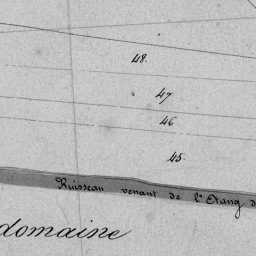 48.
47
46
45.
Ruisseau venant de l'Etang d
domaine